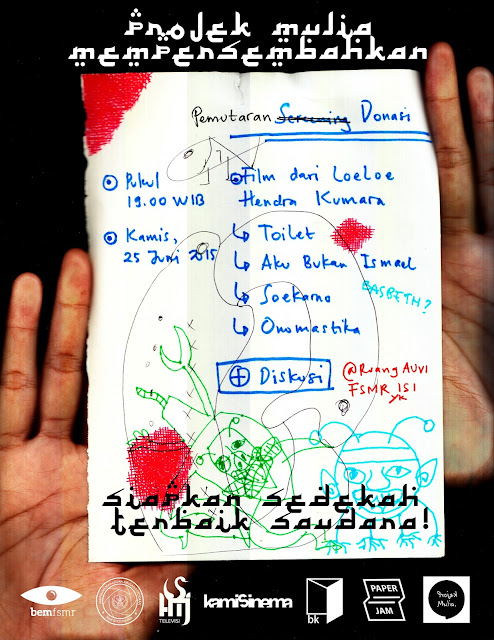 Projek mulia
mempersembahkan
Pemutaran Screening Donasi
Pukul
19.00 WIB
Film dari Loeloe
Hendra Kumara
Kamis,
25 Juni 2015
Toilet
Aku Bukan Ismael
BASBETH?
Soekarno
Onomastika
Diskusi
@Ruang AUVI
FSMR ISI
YK
siapkan sedekah
terbaik saudara!
bemfsmr
TELEVISI
kamiSinema
bk
PAPER
JAM
Projek
Mulia.